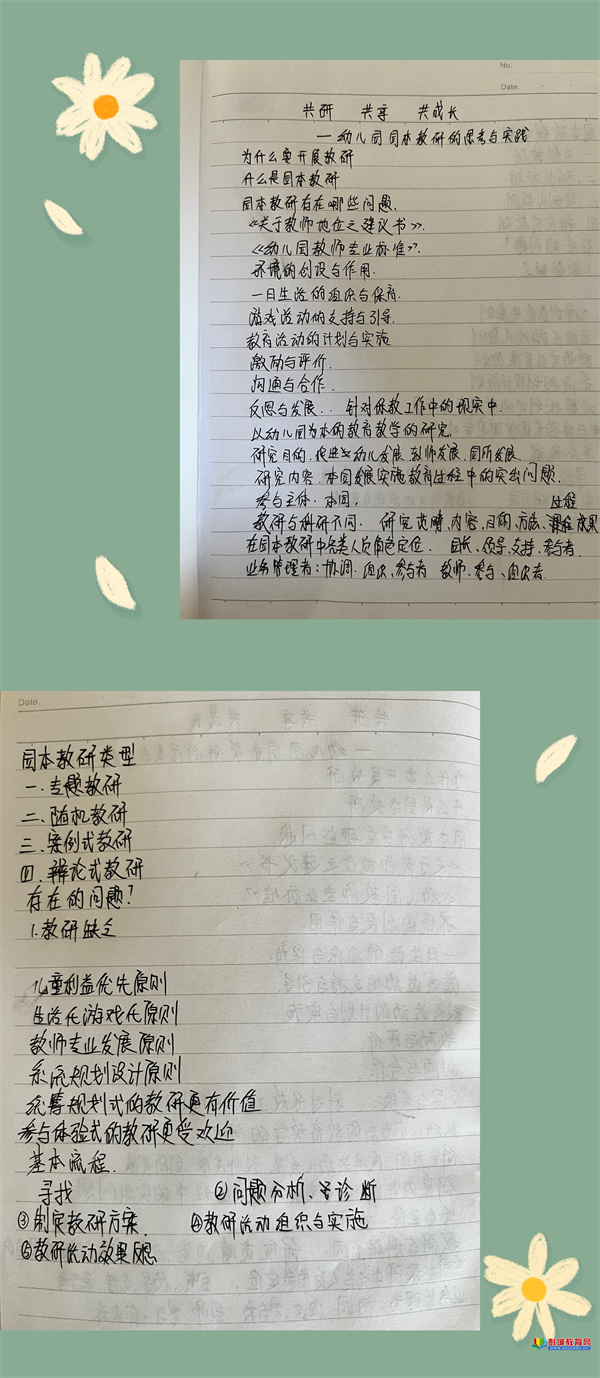 No.
Date:
共研 共享 共成长
—幼儿园园本教研的思考与实践
为什么要开展教研
什么是园本教研
园本教研存在哪些问题.
《关于教师地位之建议书》.
《幼儿园教师专业标准》.
环境的创设与作用.
一日生活的组织与保育.
游戏活动的支持与引导.
教育活动的计划与实施
激励与评价.
沟通与合作.
反思与发展.. 针对保教工作中的现实中.
以幼儿园为本的教育教学的研究.
研究目的.促进幼儿发展.教师发展.园所发展.
研究内容.本园发展实施教育过程中的突出问题.
参与主体.本园. 过程
教研与科研不同. 研究 内容、目的、方法、效果
在园本教研中各类人员角色定位. 园长、领导、支持、参与者.
业务管理者:协调.组织、参与者 教师.参与、组织者.
Date.
园本教研类型
一.专题教研
二、随机教研
三.案例式教研
四.辩论式教研
存在的问题?
1.教研缺乏
儿童利益优先原则
生活化游戏化原则
教师专业发展原则
系统规划设计原则
统筹规划式的教研更有价值
参与体验式的教研更受欢迎
基本流程.
寻找 ②问题分析、诊断
③制定教研方案. ④教研活动组织与实施
⑤教研活动效果反思
彭城教育网